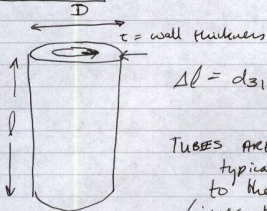 D
τ = wall thickness
Δl = d31
l
TUBES ARE
typica
to the